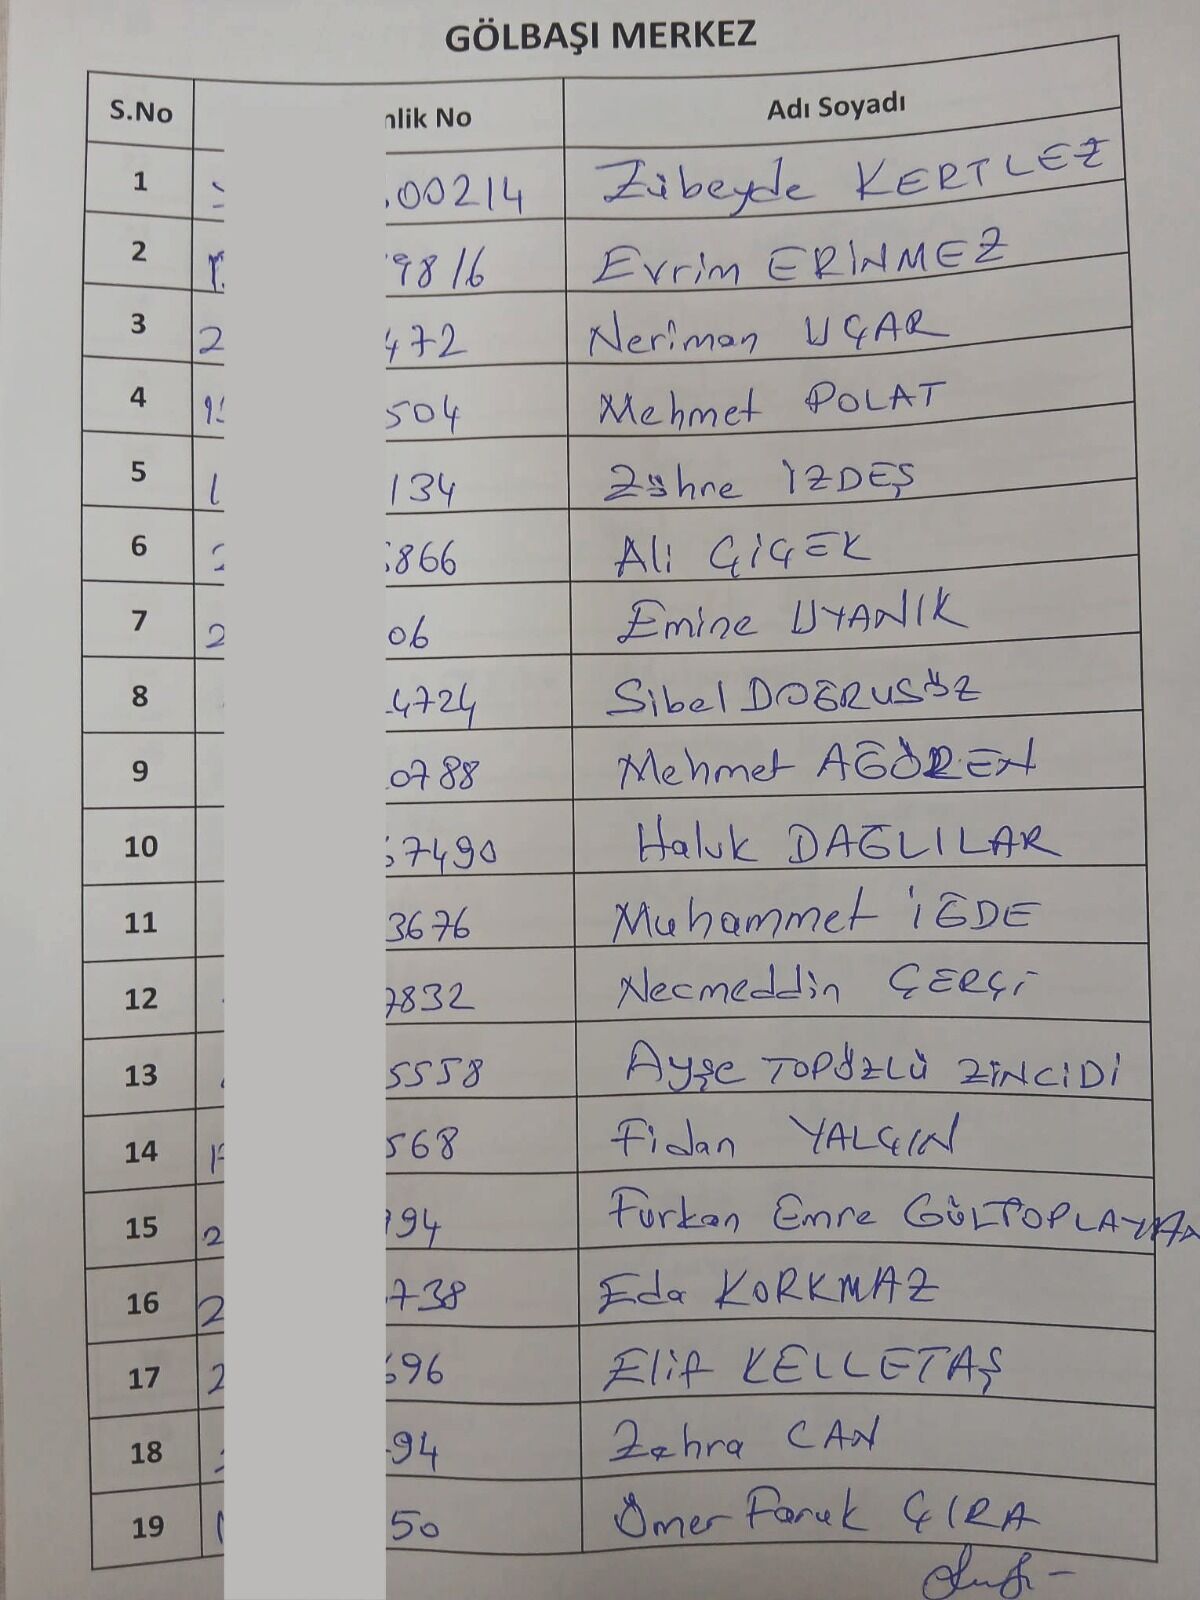 GÖLBAŞI MERKEZ
S.No nlik No Adı Soyadı
1 00214 Zübeyde KERTLEZ
2 9816 Evrim ERİNMEZ
3 2 472 Neriman UÇAR
4 504 Mehmet POLAT
5 1 134 Zühre İZDEŞ
6 866 Ali ÇİÇEK
7 2 06 Emine UYANIK
8 4724 Sibel DOĞRUSÖZ
9 0788 Mehmet AĞÖREN
10 67490 Haluk DAĞLILAR
11 3676 Muhammet İĞDE
12 7832 Necmeddin ÇERÇİ
13 5558 Ayşe TOPÜZLÜ ZİNCİDİ
14 1 568 Fidan YALÇIN
15 2 94 Furkan Emre GÜLTOPLAYAN
16 2 738 Eda KORKMAZ
17 2 696 Elif KELLETAŞ
18 94 Zehra CAN
19 1 50 Ömer Faruk ÇIRA